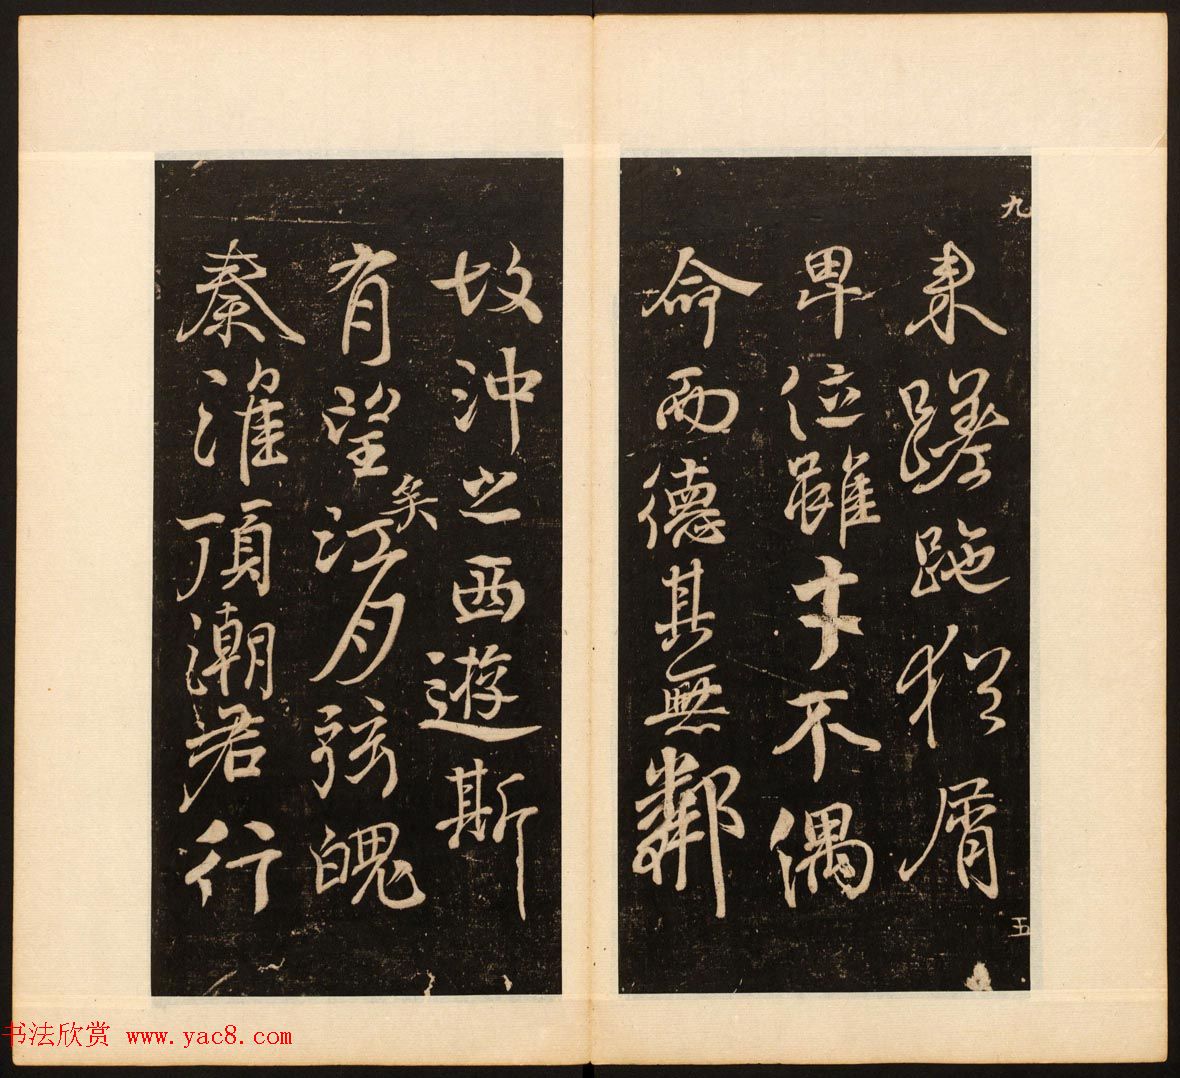 九
来蹉跎猶屑
卑位雖才不偶
命而德其無鄰
五
故沖之西遊斯
有望矣江月弦魄
秦淮頂潮君行
书法欣赏 www.yac8.com